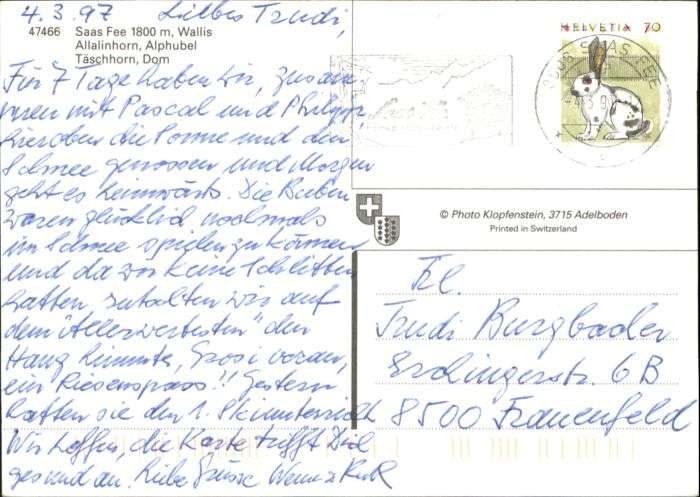 4.3.97 Liebes Trudi,
47466 Saas Fee 1800 m, Wallis
Allalinhorn, Alphubel
Täschhorn, Dom
Für 7 Tage haben wir, zusam
men mit Pascal und Philipp,
hier oben die Sonne und den
Schnee genossen und Morgen
geht es heimwärts. Die Buben
waren glücklich nochmals
im Schnee spielen zu können
und da wir keine Schlitten
hatten, rutschten wir auf
dem "Allerwertesten" den
Hang hinunter, Grosi voran,
ein Riesenspass!! Gestern
hatten sie den 1. Skiunterricht
Wir hoffen, die Karte trifft Dich
gesund an. Liebe Grüsse
HELVETIA 70
© Photo Klopfenstein, 3715 Adelboden
Printed in Switzerland
Frl.
Trudi Burgbacher
Erchingerstr. 6B
8500 Frauenfeld